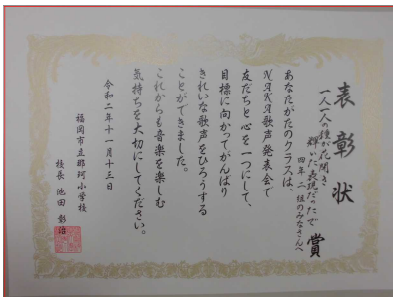 表彰状
一人一人の種が花開き
輝いた表現だったで賞
四年二組のみなさんへ
あなたがたのクラスは、
NAKA歌声発表会で
友だちと心を一つにして、
目標に向かってがんばり
きれいな歌声をひろうする
ことができました。
これからも音楽を楽しむ
気持ちを大切にしてください。
令和二年十一月十三日
福岡市立那珂小学校
校長 池田 彰治